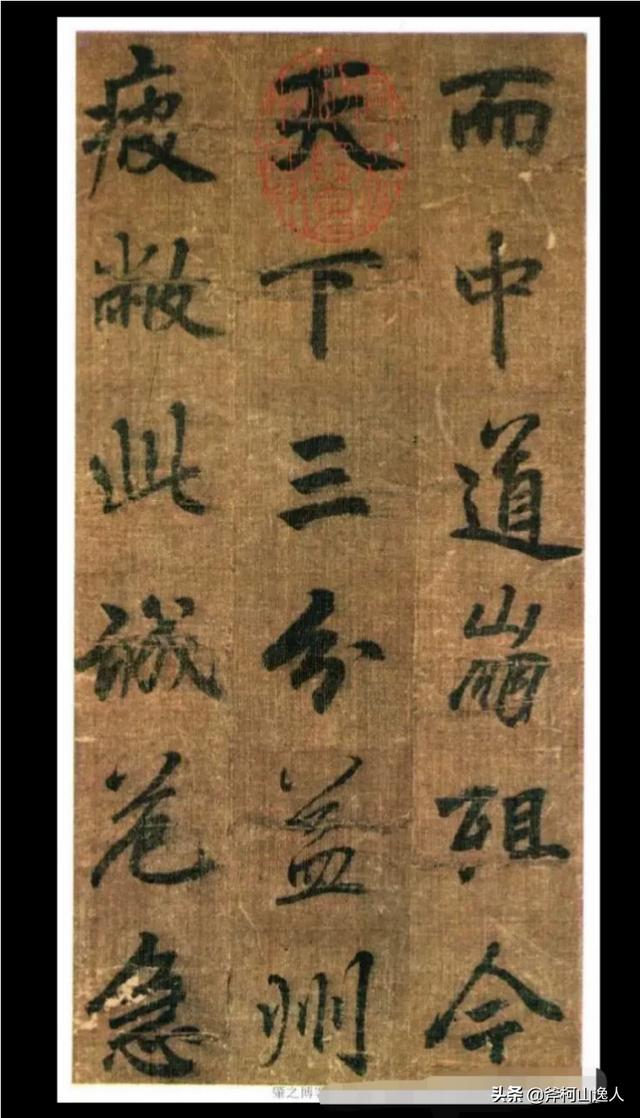 而中道崩殂今
天下三分益州
疲敝此誠危急
肇之博
头条 @斧柯山逸人